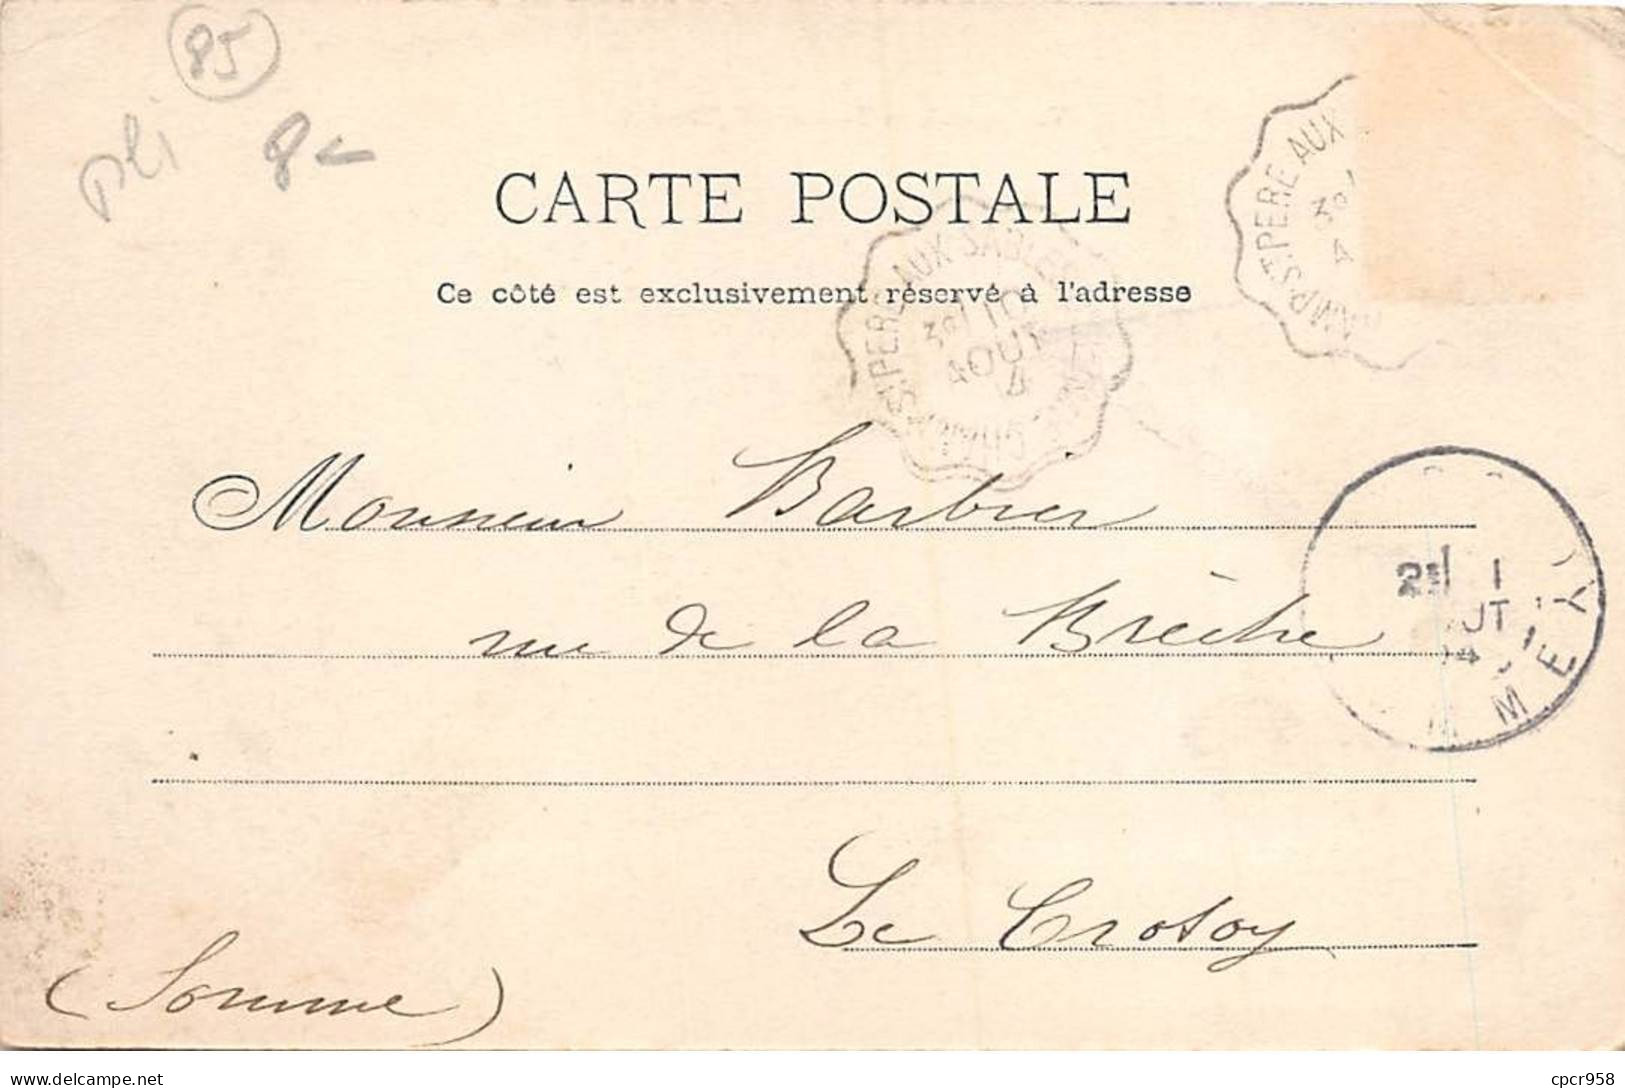 85
pli
8
CARTE POSTALE
Ce côté est exclusivement réservé à l'adresse
ST PERE AUX
3º
4
ST PERE AUX SABLES
3º 10
AOUT
4
Monsieur Barbier
rue de la Brèche
2E 1
UT
MEY
Le Crotoy
(Somme)
delcampe.net
cpcr958